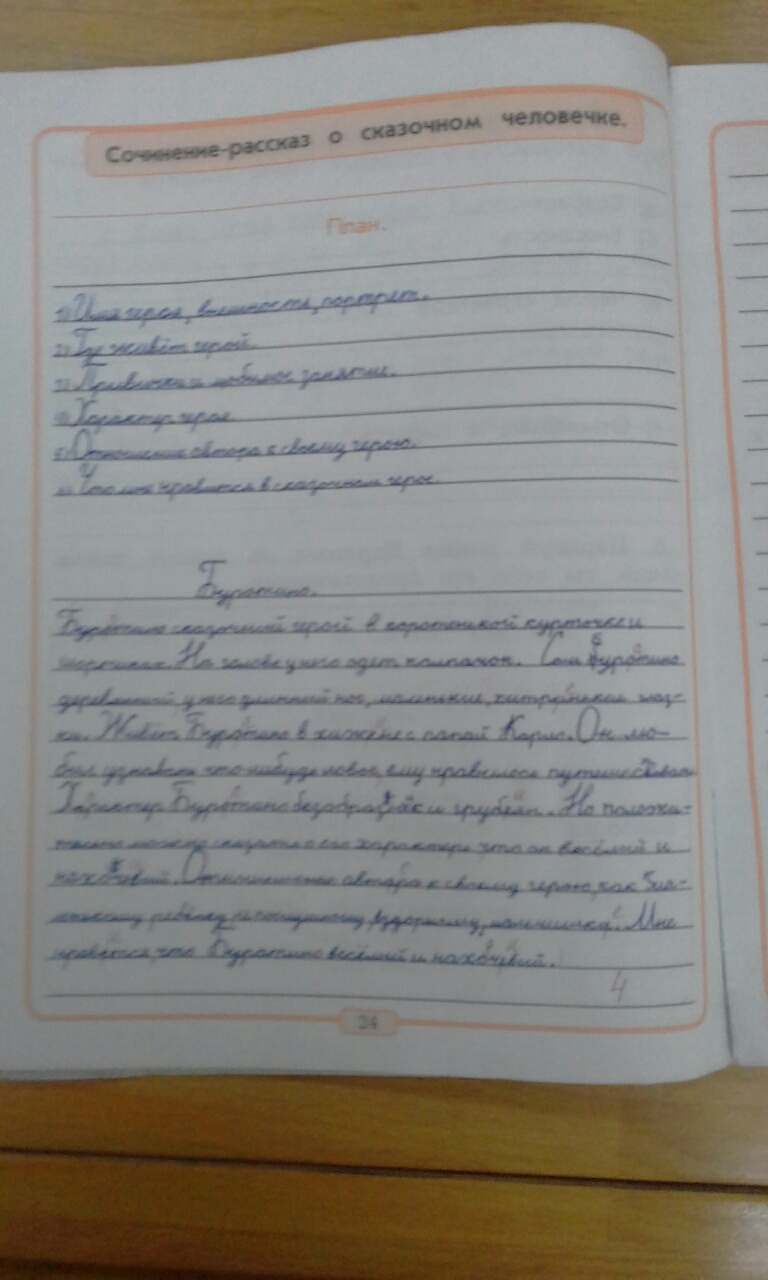 Сочинение-рассказ о сказочном человечке.
План.
1) Имя героя, внешность, портрет.
2) Где живёт герой.
3) Привычки и любимое занятие.
4) Характер героя
5) Отношение автора к своему герою.
6) Что мне нравится в сказочном герое.
Буратино.
Буратино сказочный герой в коротенькой курточке и
шортиках. На голове у него одет колпачок. Сам Буратино
деревянный, у него длинный нос, маленькие, хитренькие глаз-
ки. Живёт Буратино в хижине с папой Карло. Он лю-
бил узнавать что-нибудь новое, ему нравилось
Характер Буратино и грубиян. Но положи-
тельно можно сказать о его характере что он весёлый и
автора к своему герою, как
ребёнку, Мне
что Буратино весёлый и
4
24